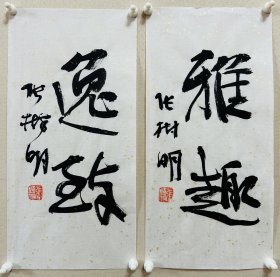 雅趣
张树明
逸致
张树明